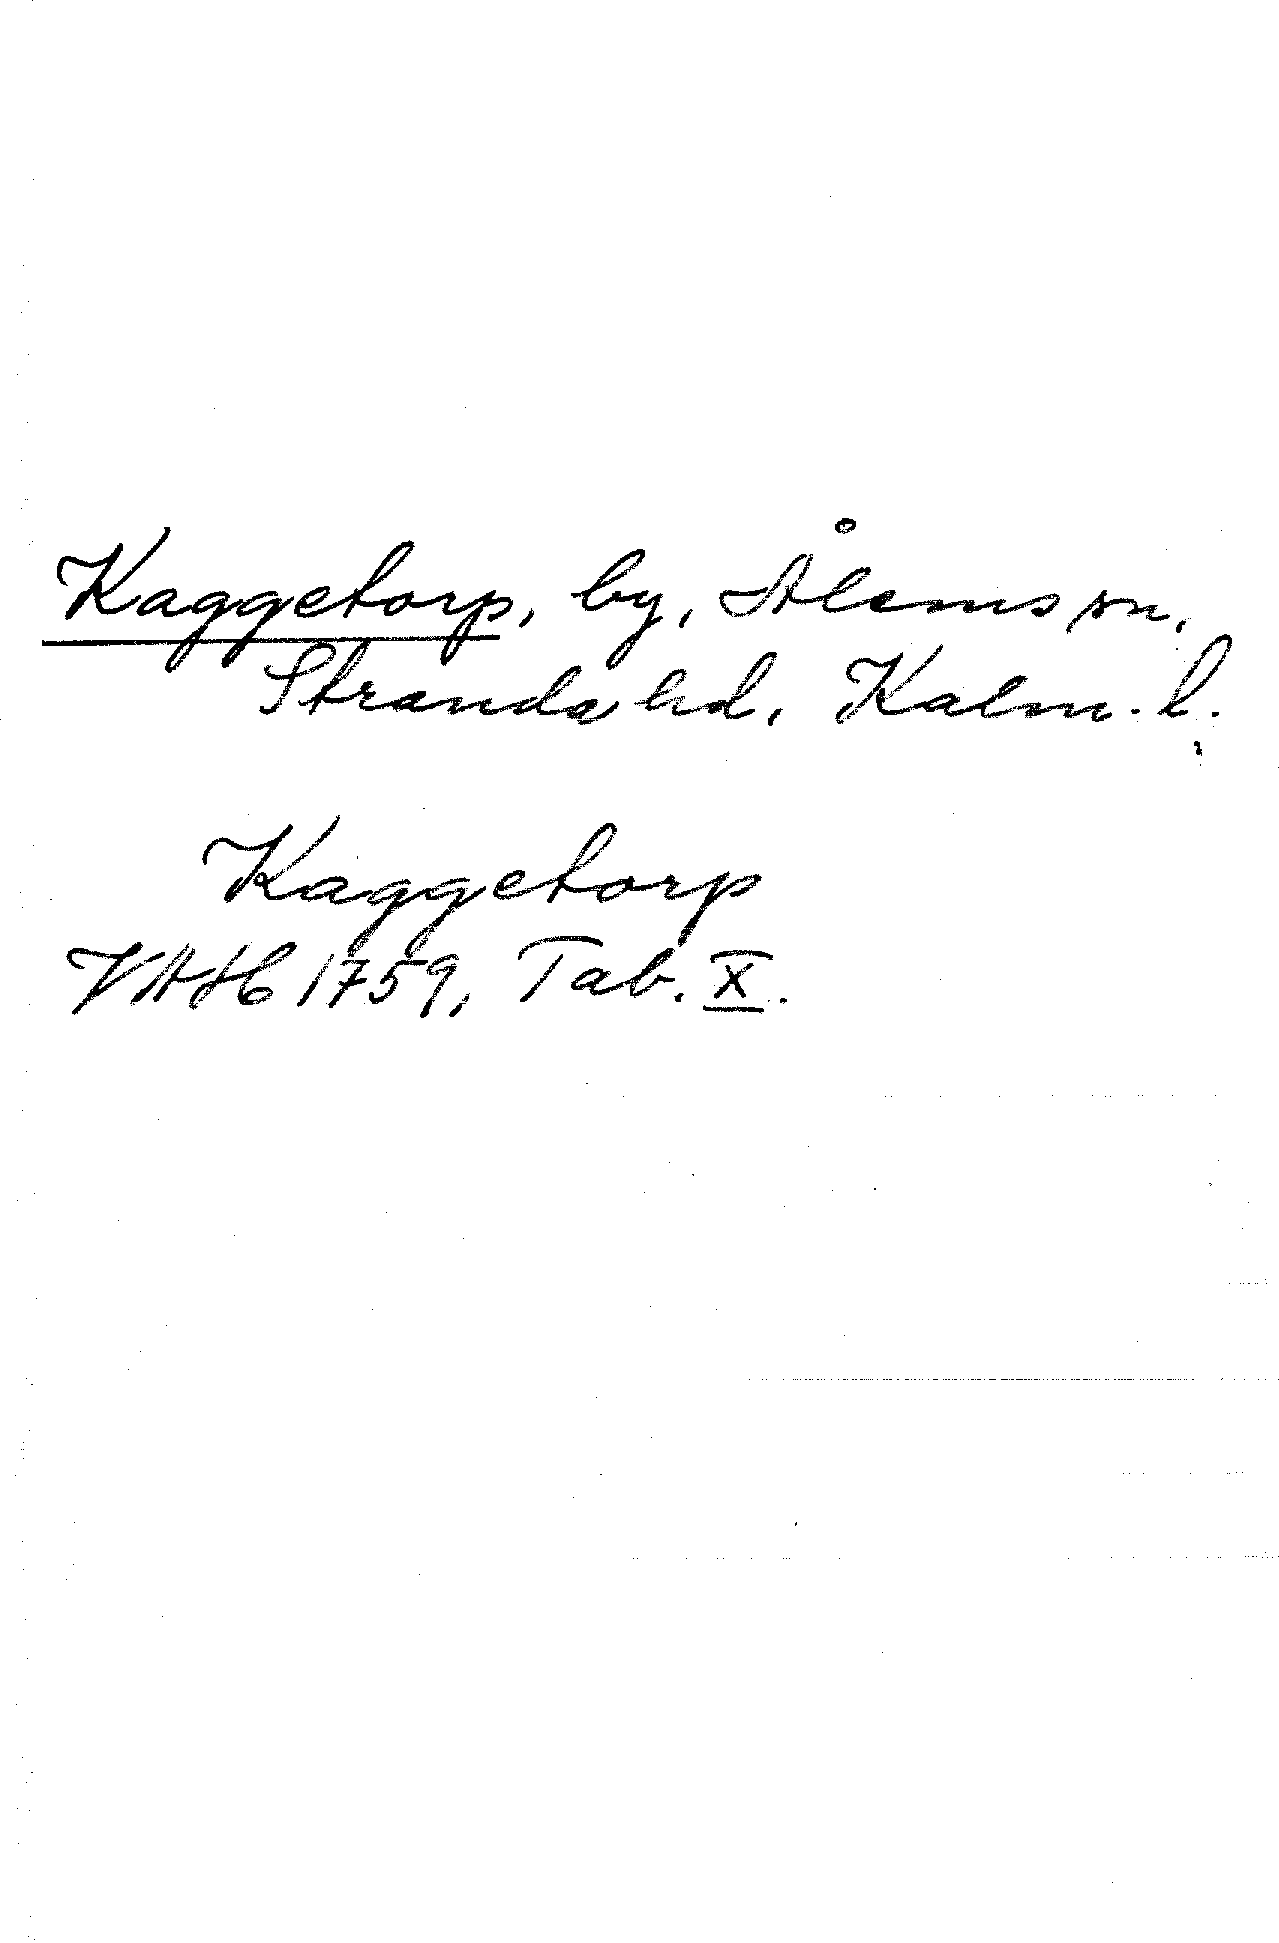 Kaggetorp, by, Ålems sn,
Stranda hd, Kalm. l.
Kaggetorp
VAH 1759, Tab. X.